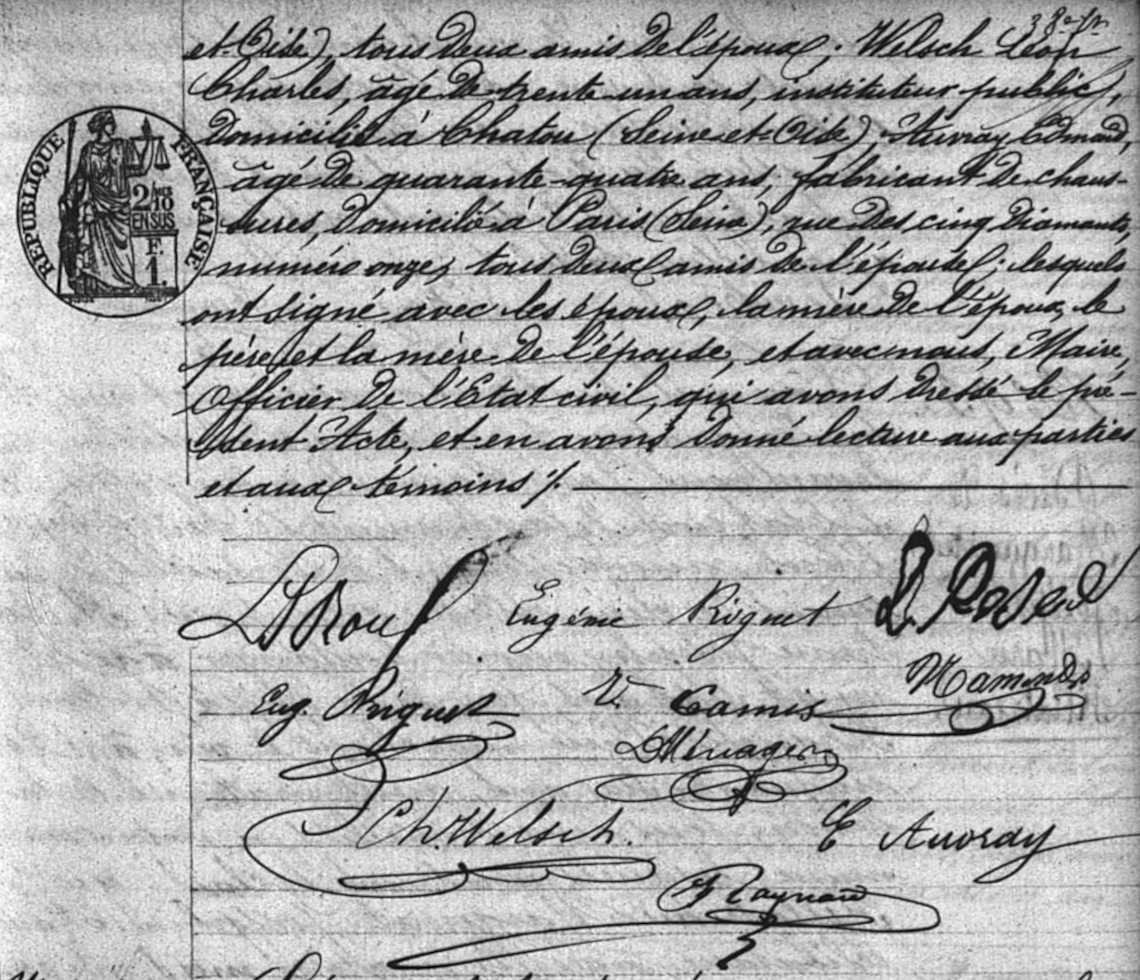 38e fn
et-Oise), tous deux amis de l'époux; Welsch Léon
Charles, âgé de trente un ans, instituteur public,
domicilié à Chatou (Seine-et-Oise), Auvray Edmond,
âgé de quarante-quatre ans, fabricant de chaus-
sures, domicilié à Paris (Seine), rue des cinq diamants,
numéro onze, tous deux amis de l'épouse; lesquels
ont signé avec les époux, la mère de l'époux, le
père et la mère de l'épouse, et avec nous, Maire,
Officier de l'Etat civil, qui avons dressé le pré-
sent Acte, et en avons donné lecture aux parties
et aux témoins ./.
RÉPUBLIQUE FRANÇAISE
2/10 MES
EN SUS
F.
1.
Eugénie Riguet
Eug. Riguet
Ve Camis
Mamondo
L Ménager
Ch. Welsch.
E Auvray
Raynaud